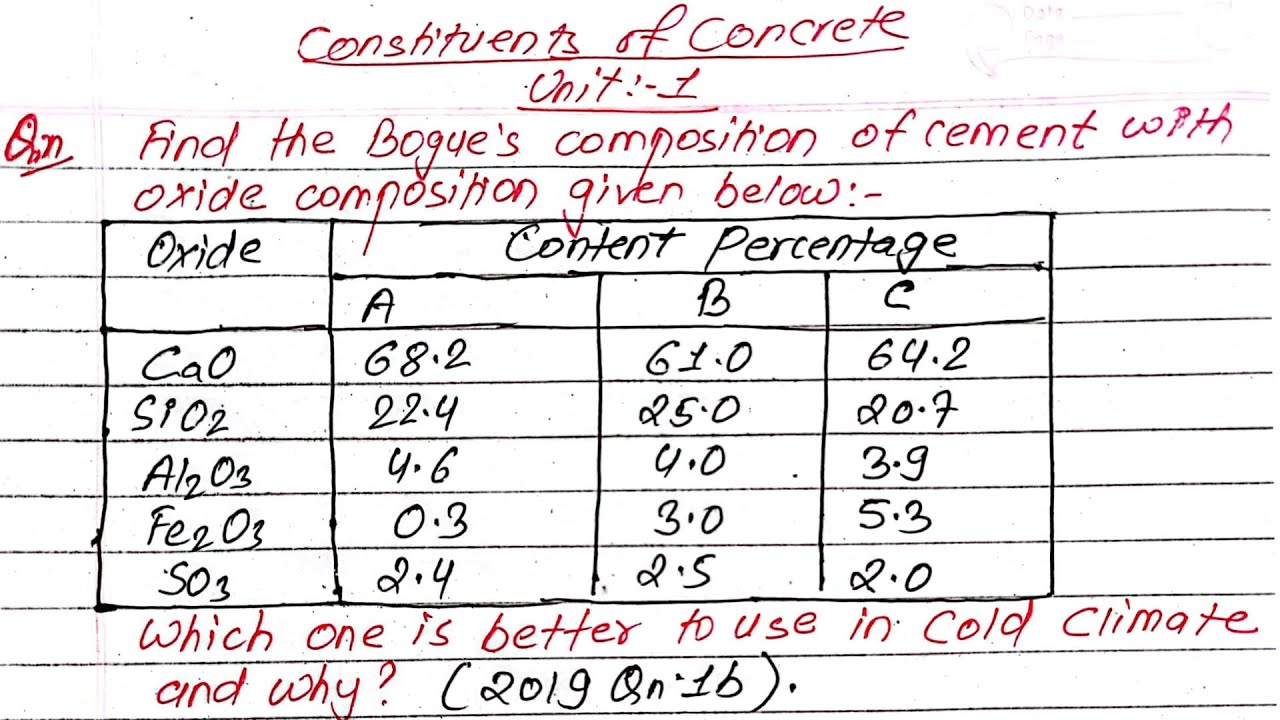 Constituents of Concrete
Unit:-1
Qn Find the Bogue's composition of cement with
oxide composition given below:-
Oxide Content Percentage
A B C
CaO 68.2 61.0 64.2
SiO2 22.4 25.0 20.7
Al2O3 4.6 4.0 3.9
Fe2O3 0.3 3.0 5.3
SO3 2.4 2.5 2.0
Which one is better to use in cold climate
and why? (2019 Qn.1b).